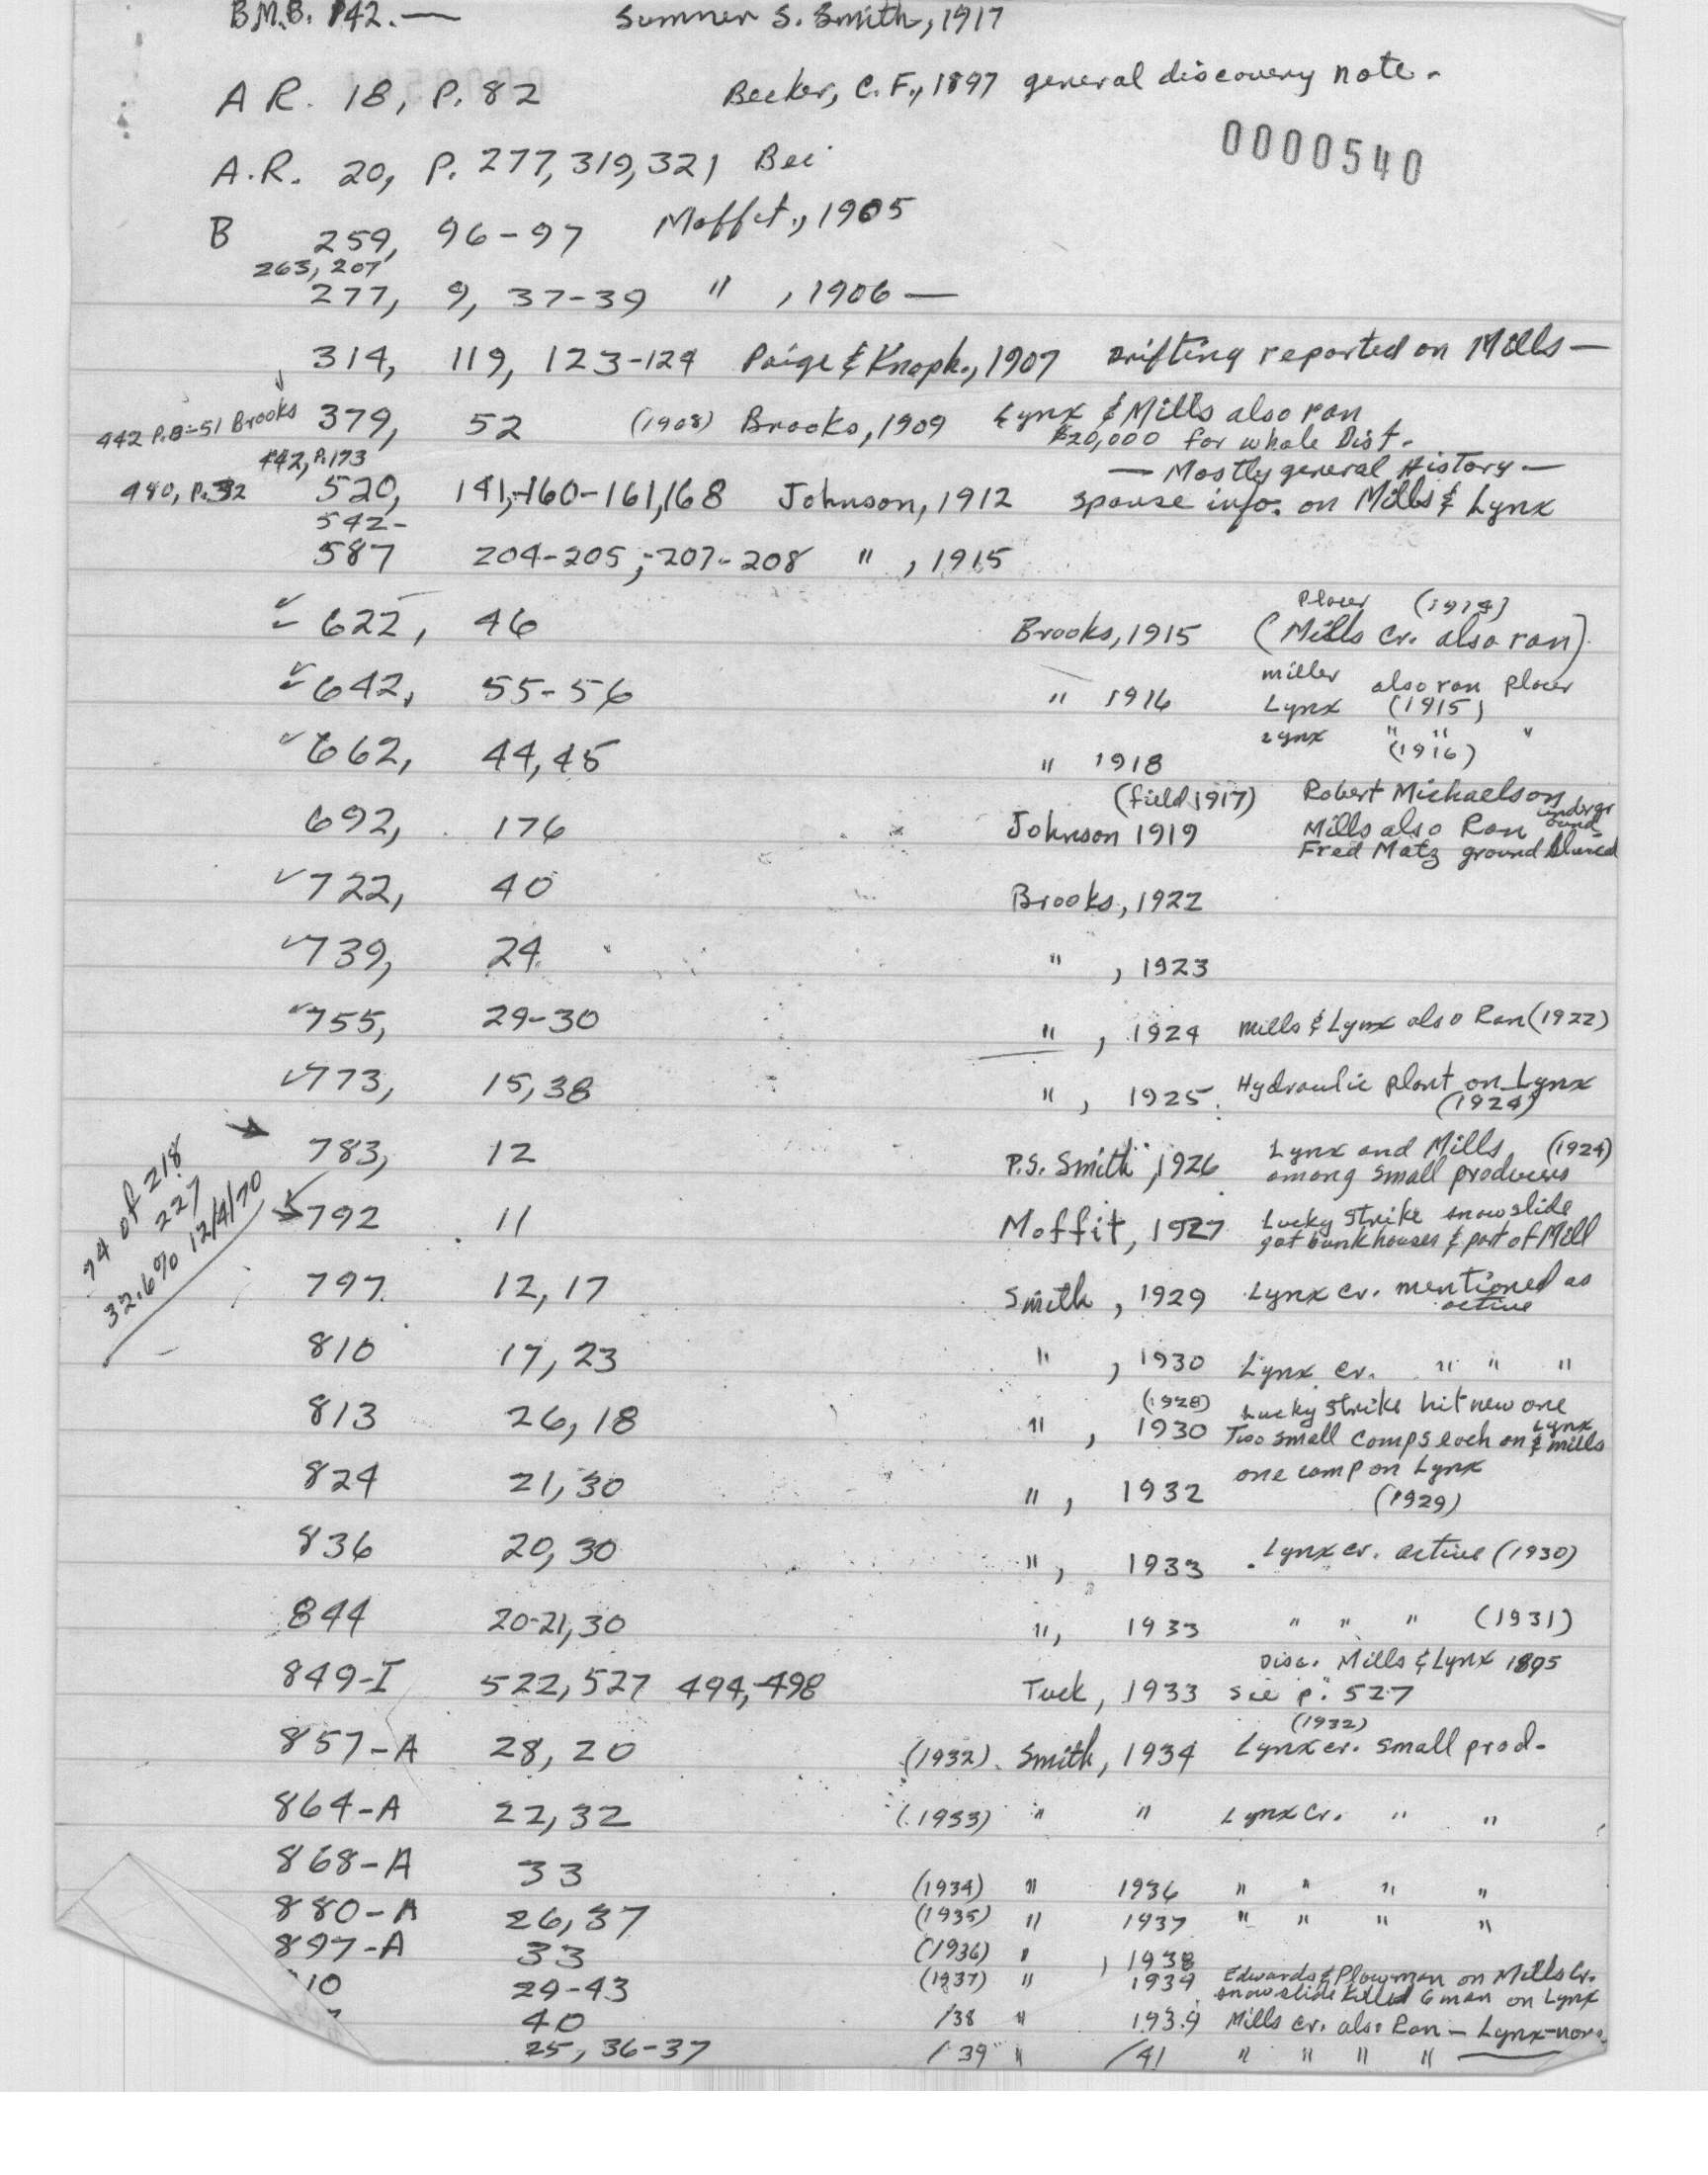 B.M.B. 142. — Sumner S. Smith, 1917
A R. 18, P. 82 Becker, C. F., 1897 general discovery note.
0000540
A.R. 20, P. 277, 319, 321 Bec
B 259, 96-97 Moffit., 1905
263, 207
277, 9, 37-39 " , 1906 —
314, 119, 123-124 Paige & Knoph., 1907 Drifting reported on Mills —
442 P.8-51 Brooks 379, 52 (1908) Brooks, 1909 Lynx & Mills also ran
$20,000 for whole Dist.
442, P.173 — Mostly general History —
480, P.32 520, 141,-160-161,168 Johnson, 1912 sparse info. on Mills & Lynx
542-
587 204-205,-207-208 " , 1915
Placer (1914)
622, 46 Brooks, 1915 (Mills Cr. also ran)
miller also ran placer
642, 55-56 " 1916 Lynx (1915)
Lynx " " "
662, 44, 45 " 1918 (1916)
(field 1917) Robert Michaelson undergr
692, 176 Johnson 1919 Mills also Ran ound
Fred Matz ground sluced
722, 40 Brooks, 1922
739, 24 " , 1923
755, 29-30 " , 1924 Mills & Lynx also Ran (1922)
773, 15, 38 " , 1925 Hydraulic plant on Lynx
(1924)
783, 12 P.S. Smith, 1926 Lynx and Mills (1924)
among small producers
74 of 218
227
32.6% 12/4/70
792 11 Moffit, 1927 Lucky Strike snowslide
got bunkhouses & part of Mill
797 12, 17 Smith, 1929 Lynx cr. mentioned as
active
810 17, 23 " , 1930 Lynx cr. " " "
(1928) Lucky Strike hit new one
813 26, 18 " , 1930 Two small camps each on Lynx & mills
824 21, 30 " , 1932 one camp on Lynx
(1929)
836 20, 30 " , 1933 Lynx cr. active (1930)
844 20-21, 30 " , 1933 " " " (1931)
Disc. Mills & Lynx 1895
849-I 522, 527 494,-498 Tuck, 1933 see p. 527
(1932)
857-A 28, 20 (1932) Smith, 1934 Lynx cr. small prod.
864-A 22, 32 (1933) " " Lynx Cr. " "
868-A 33 (1934) " 1936 " " " "
880-A 26, 37 (1935) " 1937 " " " "
897-A 33 (1936) " , 1938
10 29-43 (1937) " 1939 Edwards & Plowman on Mills Cr.
snowslide killed 6 man on Lynx
40 /38 " 1939 Mills cr. also Ran — Lynx-non
25, 36-37 /39 " /41 " " " " —